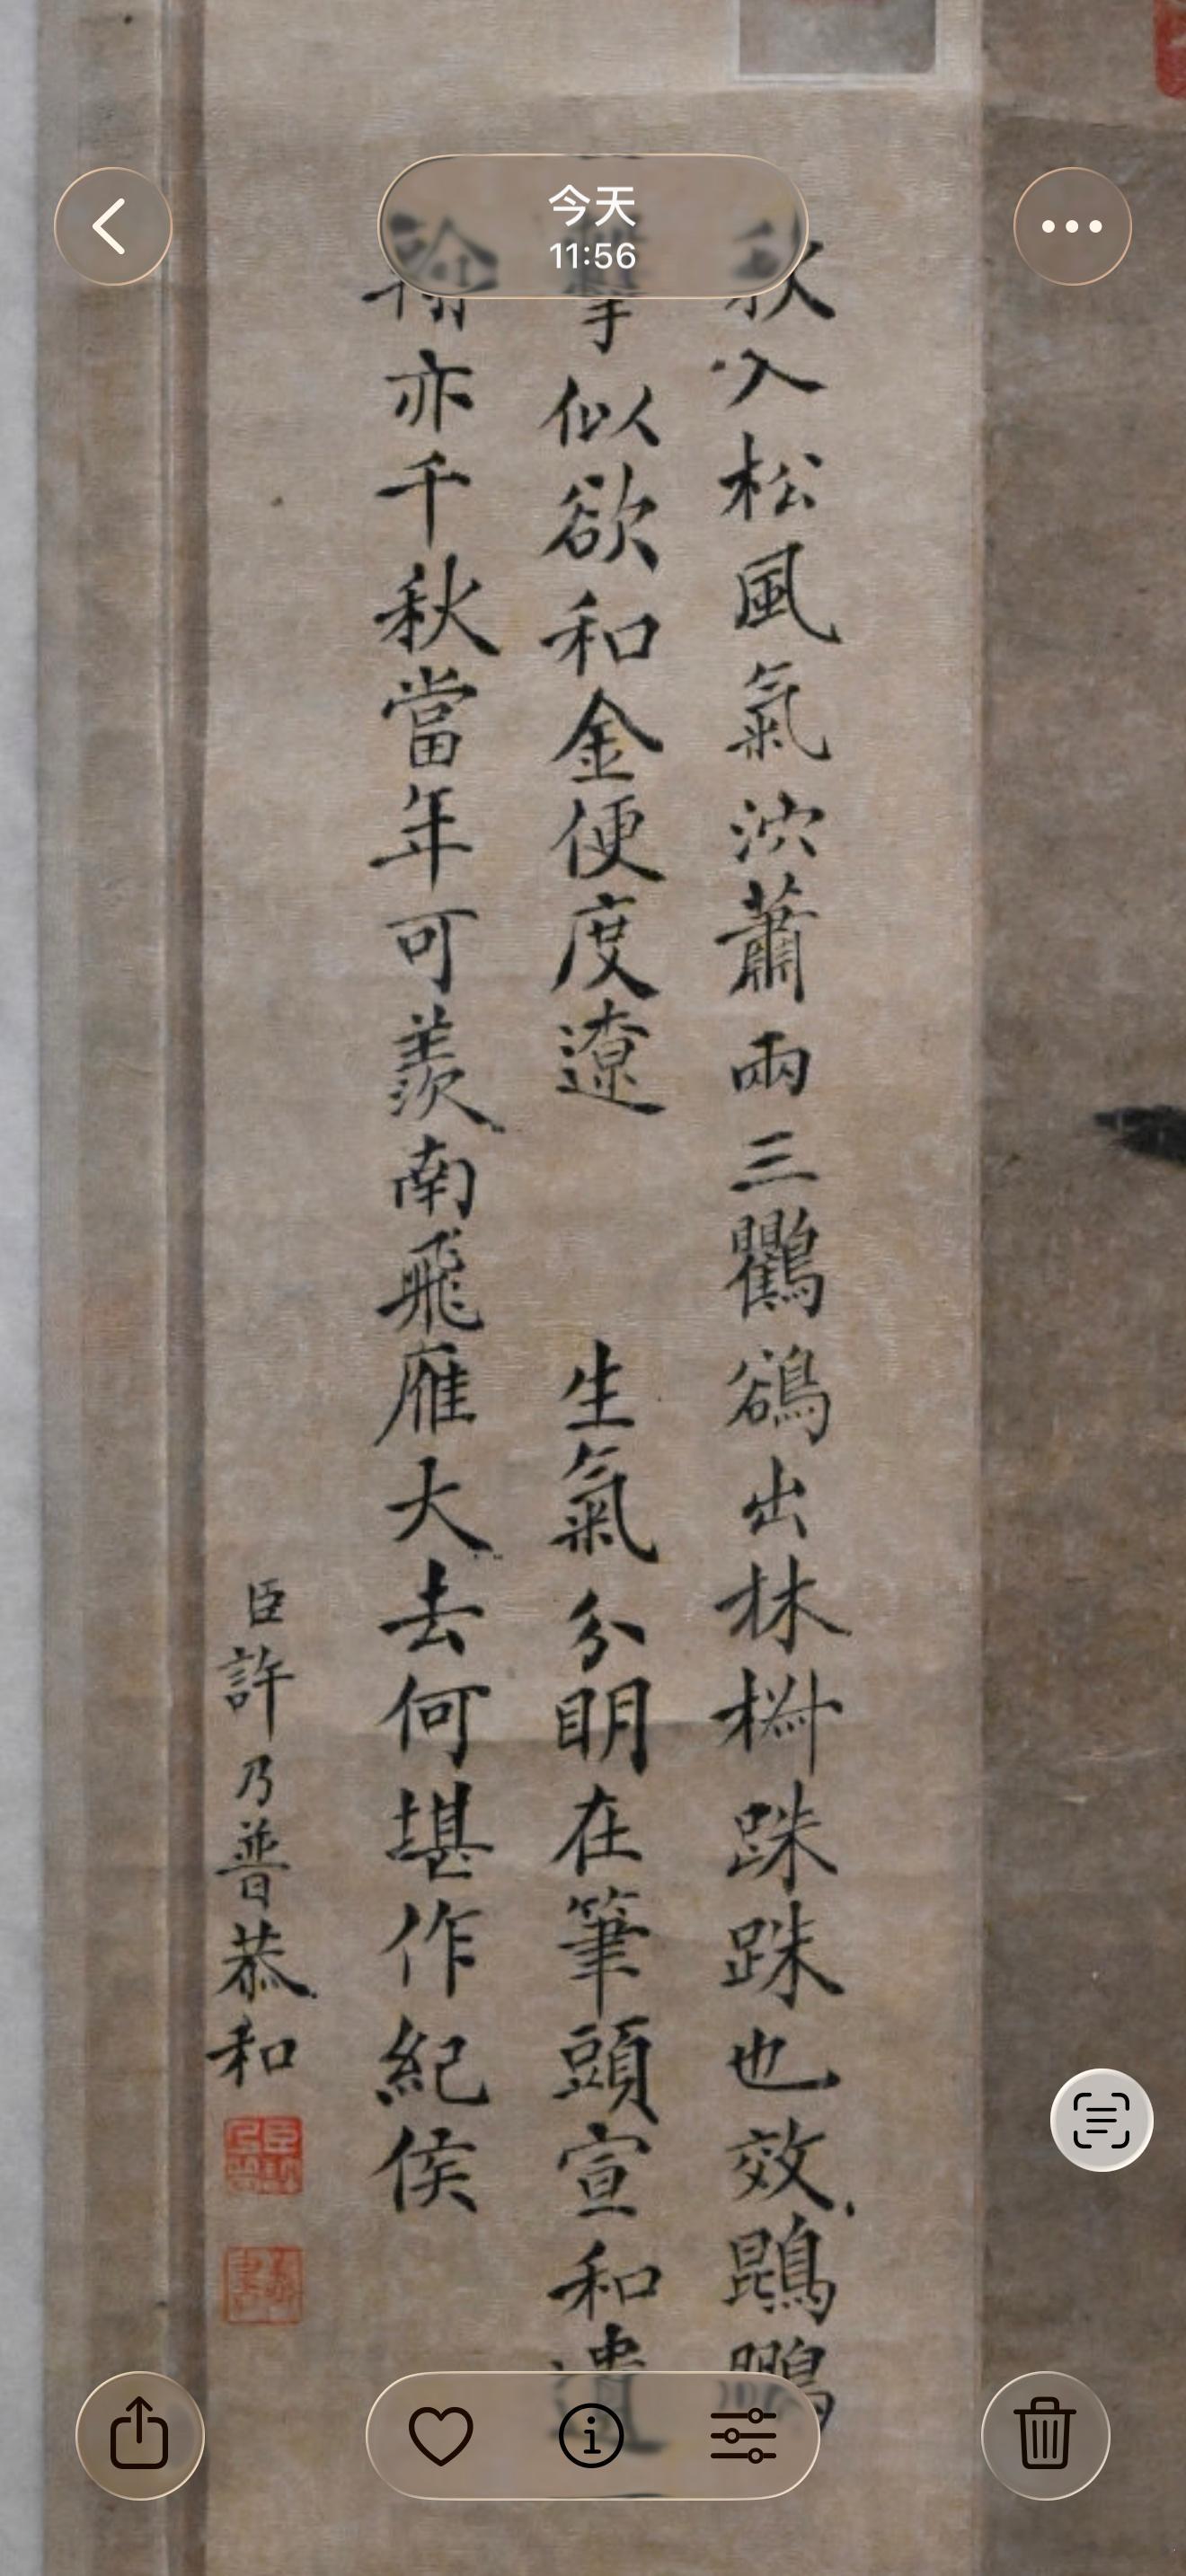 今天
11:56
秋入松風氣泬蕭兩三鸜鵒出林跦跦也效鵾鵬
擊似欲和金便度遼 生氣分眀在筆頭宣和遺
翰亦千秋當年可羨南飛雁大去何堪作紀侯
臣許乃普恭和